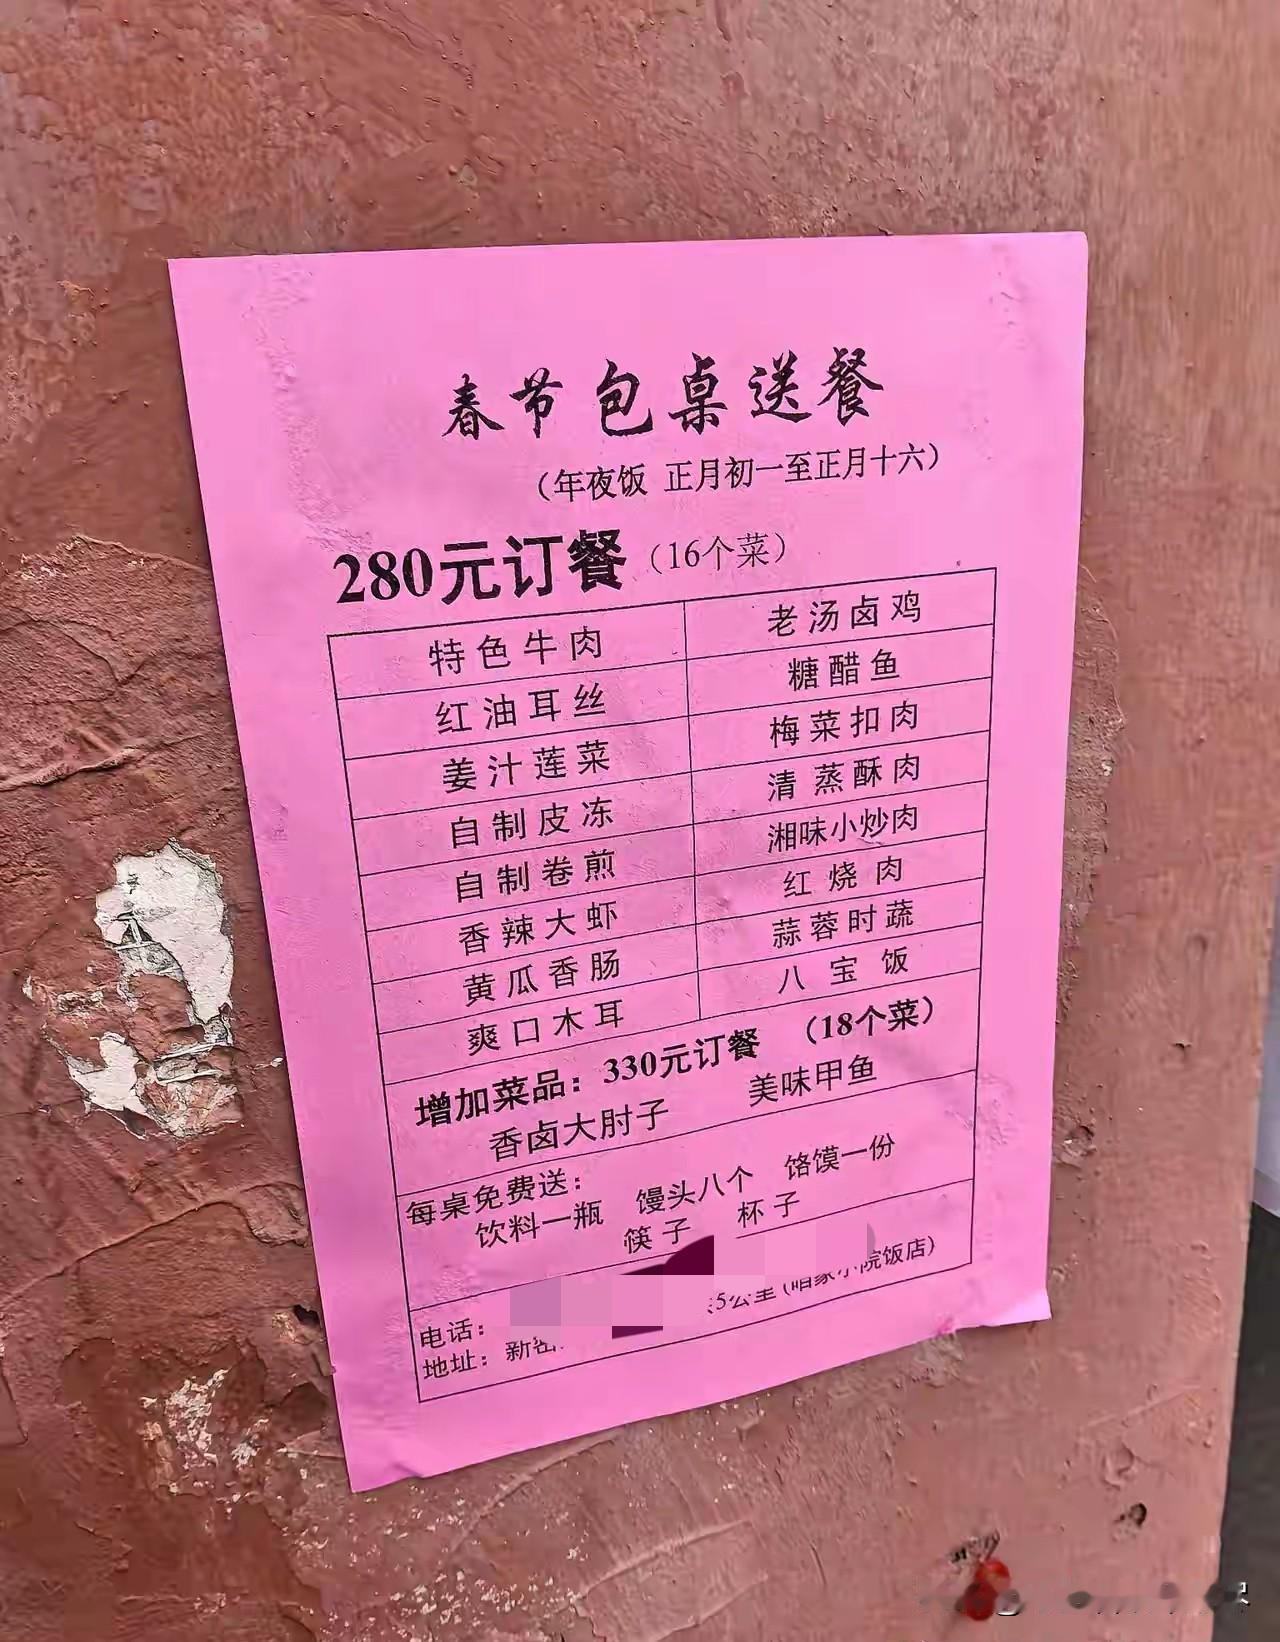 春节包桌送餐
（年夜饭 正月初一至正月十六）
280元订餐（16个菜）
特色牛肉 老汤卤鸡
红油耳丝 糖醋鱼
姜汁莲菜 梅菜扣肉
自制皮冻 清蒸酥肉
自制卷煎 湘味小炒肉
香辣大虾 红烧肉
黄瓜香肠 蒜蓉时蔬
爽口木耳 八宝饭
增加菜品：330元订餐 （18个菜）
香卤大肘子 美味甲鱼
每桌免费送：
饮料一瓶 馒头八个 饹馍一份
筷子 杯子
电话：
地址：新密 5公里（咱家小院饭店）